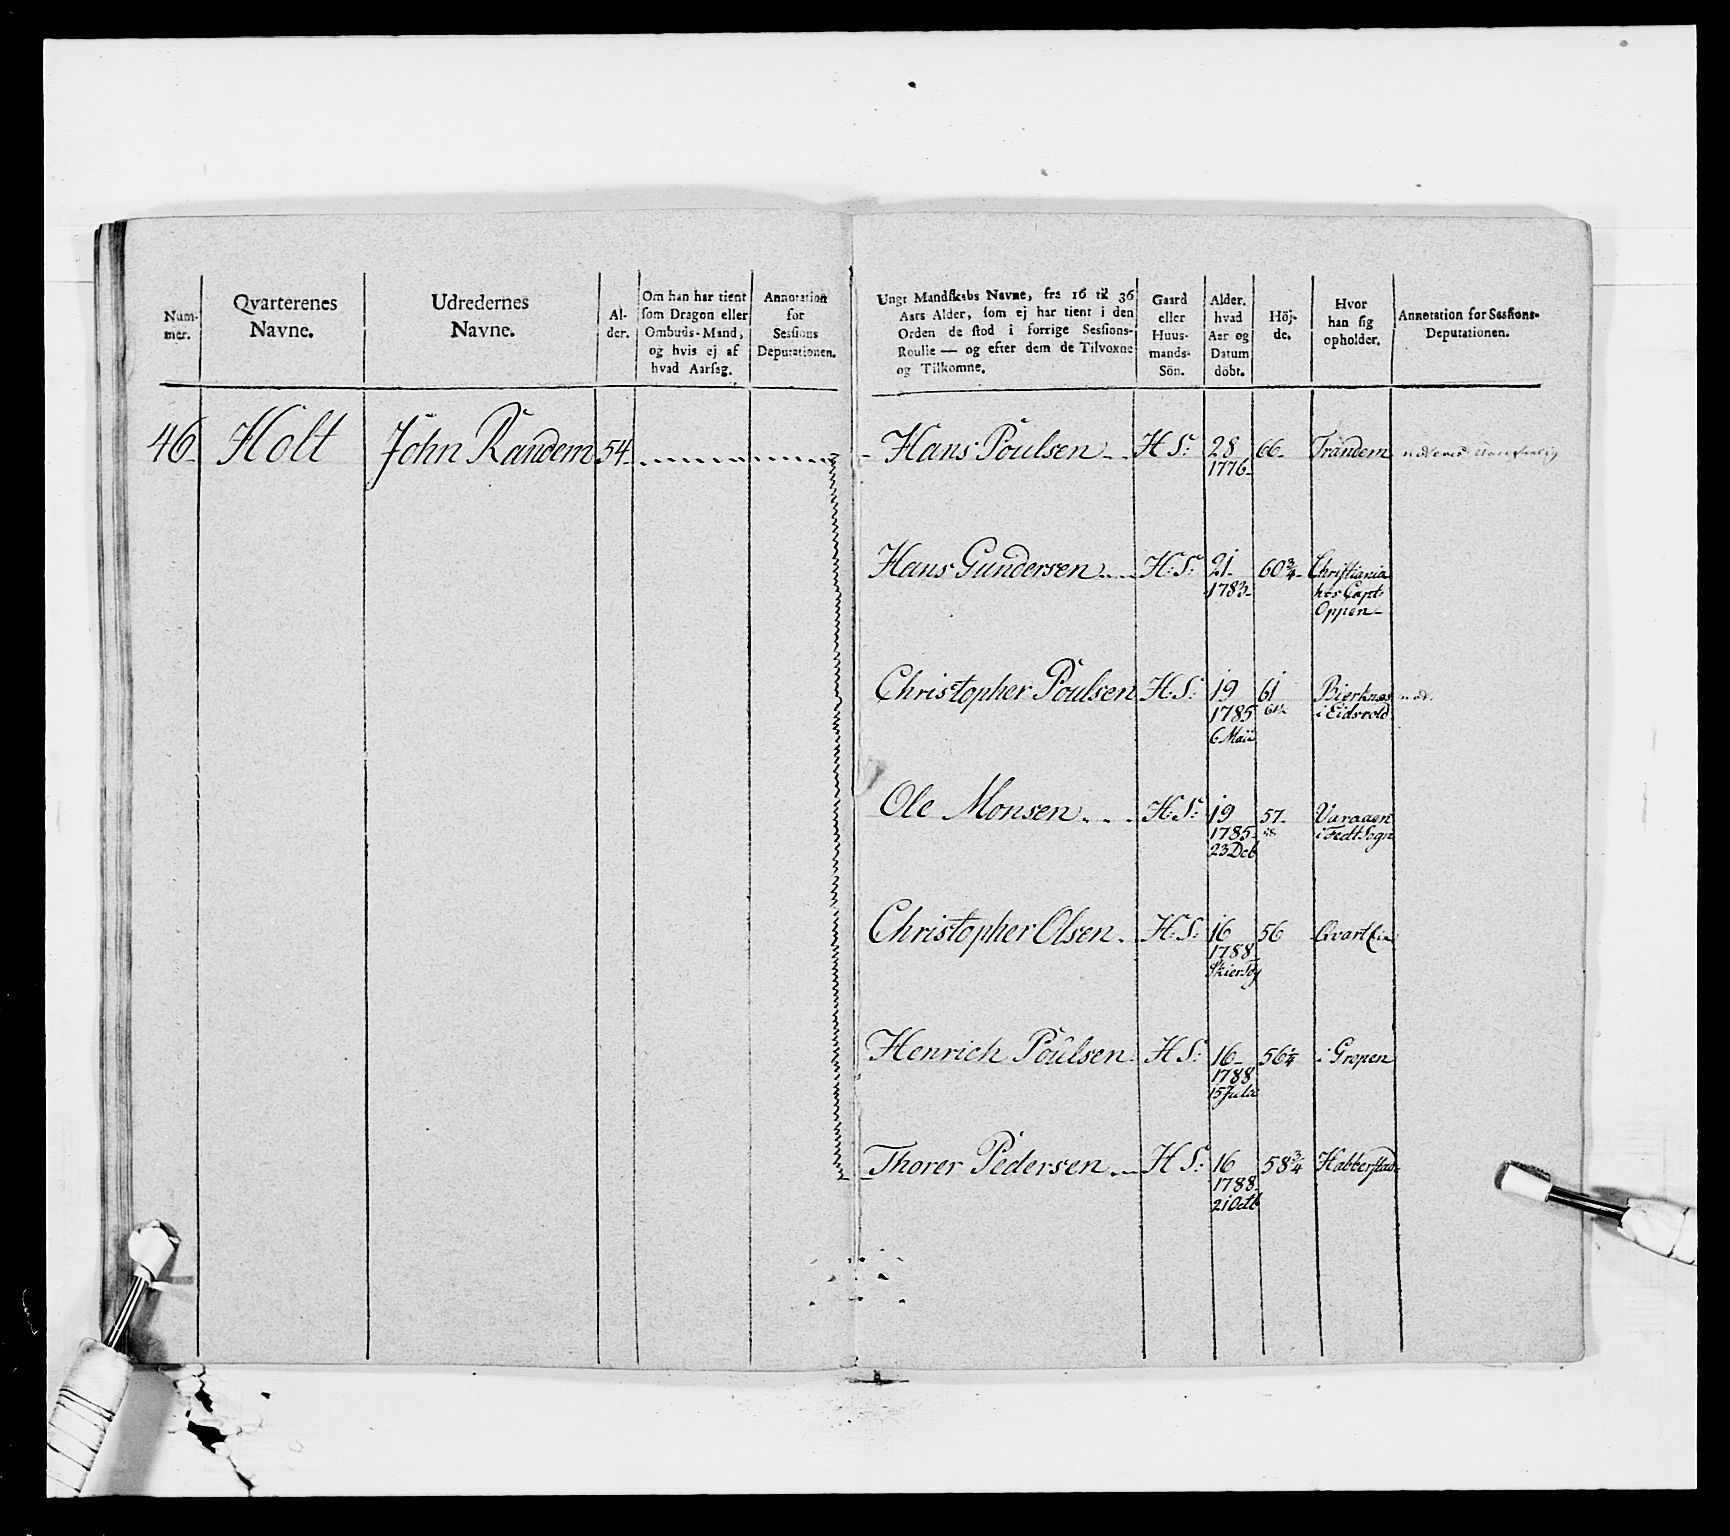 Num-
mer.
Qvarterenes
Navne.
Udredernes
Navne.
Al-
der.
Om han har tient
som Dragon eller
Ombuds-Mand,
og hvis ej af
hvad Aarsag.
Annotation
for
Sessions
Deputationen.
Ungt Mandskabs Navne, fra 16 til 36
Aars Alder, som ej har tient i den
Orden de stod i forrige Sessions-
Roulle — og efter dem de Tilvoxne
og Tilkomne.
Gaard
eller
Huus-
mands-
Sön.
Alder.
hvad
Aar og
Datum
döbt.
Höj-
de.
Hvor
han sig
opholder.
Annotation for Sessions-
Deputationen.
46 Holt John Randem 54
Hans Poulsen H S: 28 66 Trandem
1776
Hans Gundersen H: S: 21 60¾ Christiania
1783 hos Capt:
Oppen
Christopher Poulsen H: S: 19 61 Bierknes
1785 61½ i Eidsvold
6 Maii
Ole Monsen H: S: 19 57
1785 58 i Fedt Sogn
23 Deb
Christopher Olsen H: S: 16 56
1788
Henrich Poulsen H S: 16 56¼ i Gropen
1788
15 Julii
Thorer Pedersen H S: 16 58¾ Habberstad
1788
21 Octb